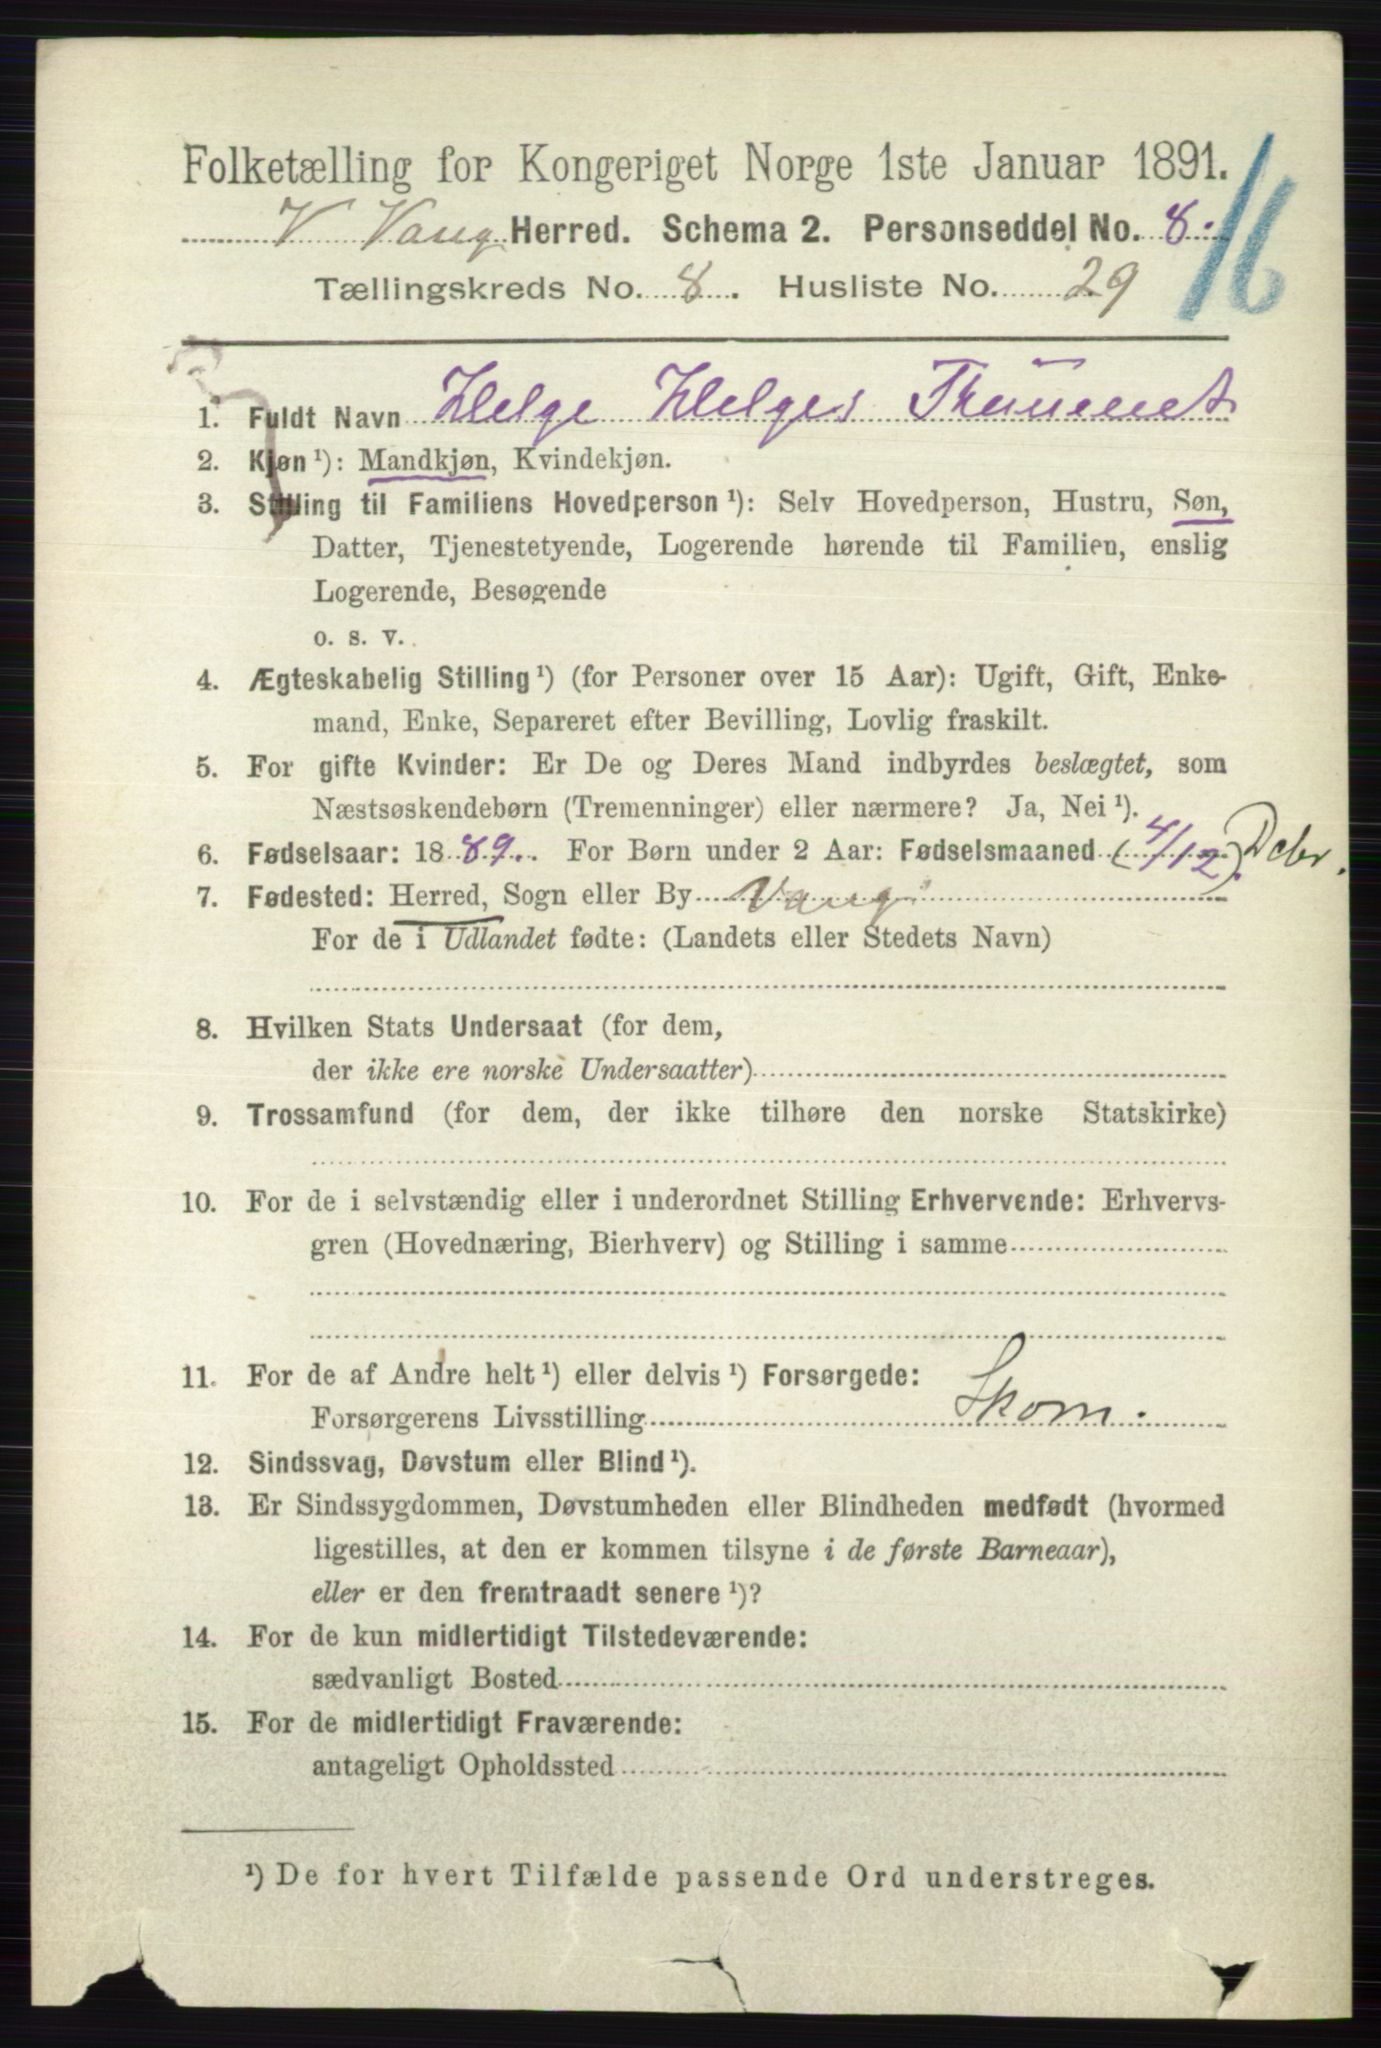 Folketælling for Kongeriget Norge 1ste Januar 1891.
16
V Vang Herred. Schema 2. Personseddel No. 8.
Tællingskreds No. 8. Husliste No. 29
1. Fuldt Navn Helge Helges
2. Kjøn ¹): Mandkjøn, Kvindekjøn.
3. Stilling til Familiens Hovedperson ¹): Selv Hovedperson, Hustru, Søn,
Datter, Tjenestetyende, Logerende hørende til Familien, enslig
Logerende, Besøgende
o. s. v.
4. Ægteskabelig Stilling ¹) (for Personer over 15 Aar): Ugift, Gift, Enke-
mand, Enke, Separeret efter Bevilling, Lovlig fraskilt.
5. For gifte Kvinder: Er De og Deres Mand indbyrdes beslægtet, som
Næstsøskendebørn (Tremenninger) eller nærmere? Ja, Nei ¹).
6. Fødselsaar: 1889. For Børn under 2 Aar: Fødselsmaaned (4/12). Dcbr.
7. Fødested: Herred, Sogn eller By Vang
For de i Udlandet fødte: (Landets eller Stedets Navn)
8. Hvilken Stats Undersaat (for dem,
der ikke ere norske Undersaatter)
9. Trossamfund (for dem, der ikke tilhøre den norske Statskirke)
10. For de i selvstændig eller i underordnet Stilling Erhvervende: Erhvervs-
gren (Hovednæring, Bierhverv) og Stilling i samme
11. For de af Andre helt ¹) eller delvis ¹) Forsørgede:
Forsørgerens Livsstilling Skom.
12. Sindssvag, Døvstum eller Blind ¹).
13. Er Sindssygdommen, Døvstumheden eller Blindheden medfødt (hvormed
ligestilles, at den er kommen tilsyne i de første Barneaar),
eller er den fremtraadt senere ¹)?
14. For de kun midlertidigt Tilstedeværende:
sædvanligt Bosted
15. For de midlertidigt Fraværende:
antageligt Opholdssted
¹) De for hvert Tilfælde passende Ord understreges.